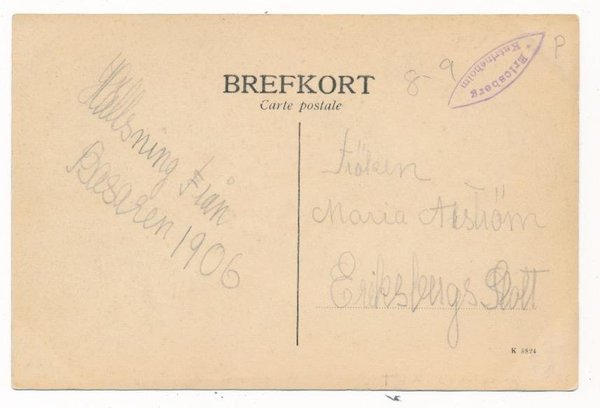 BREFKORT
Carte postale
Ericsberg
Katrineholm
8-9
P
Hällsning Från
Basaren 1906
Fröken
Maria
Eriksbergs Slott
K 5824